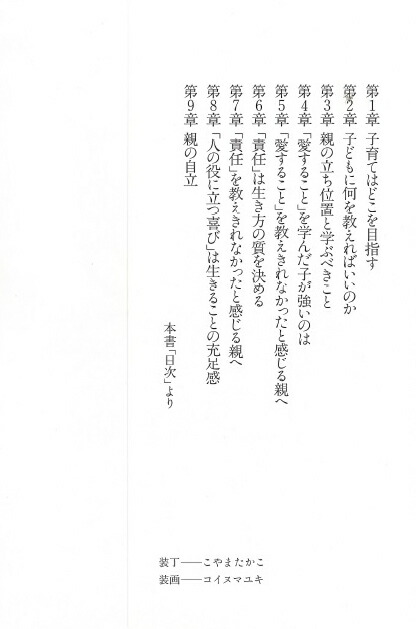 第1章 子育てはどこを目指す
第2章 子どもに何を教えればいいのか
第3章 親の立ち位置と学ぶべきこと
第4章 「愛すること」を学んだ子が強いのは
第5章 「愛すること」を教えきれなかったと感じる親へ
第6章 「責任」は生き方の質を決める
第7章 「責任」を教えきれなかったと感じる親へ
第8章 「人の役に立つ喜び」は生きることの充足感
第9章 親の自立
本書「目次」より
装丁——こやまたかこ
装画——コイヌマユキ